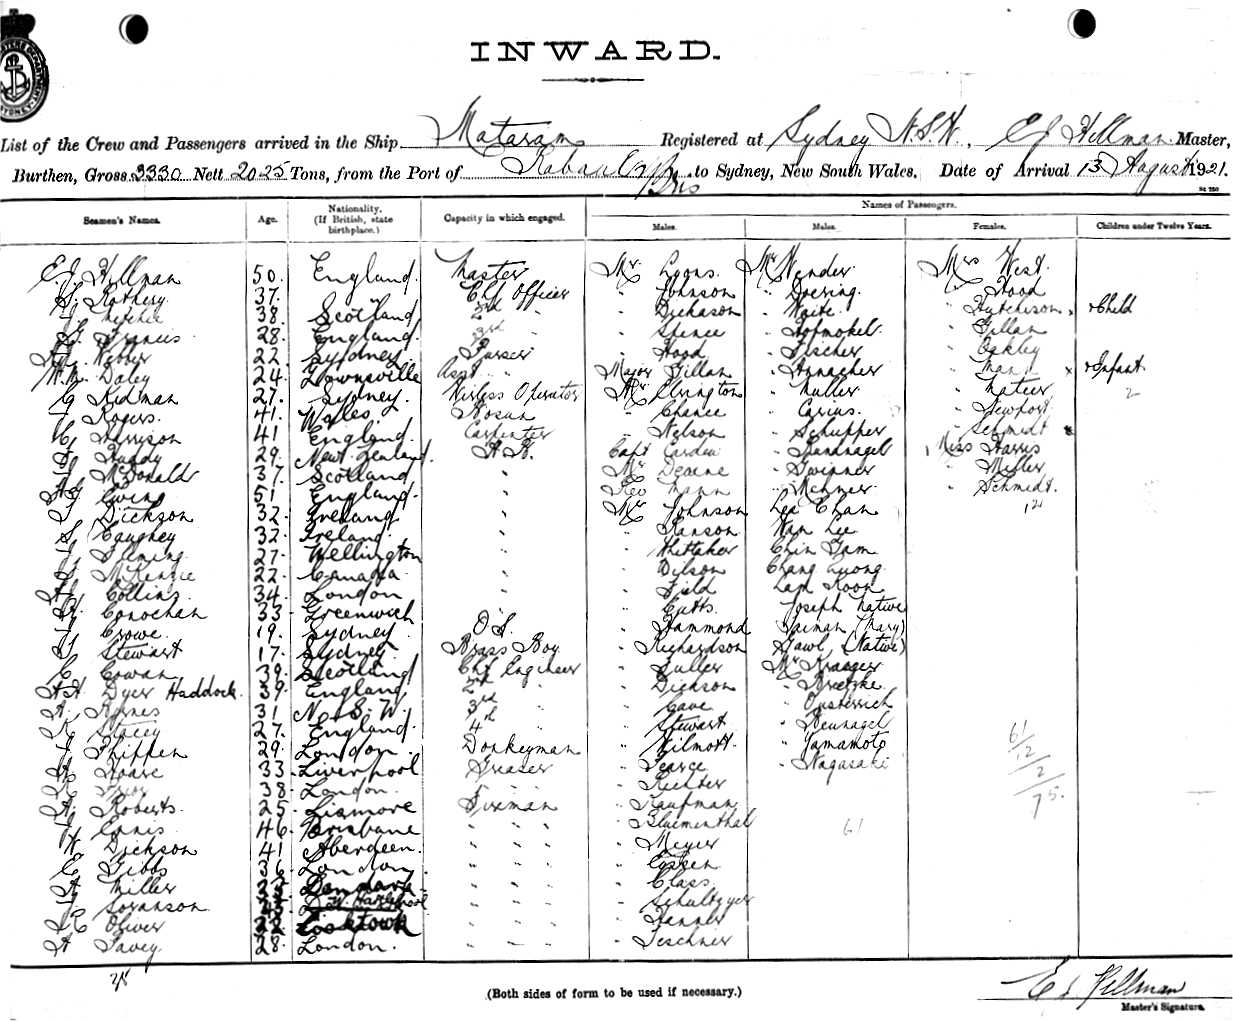 INWARD.
List of the Crew and Passengers arrived in the Ship Mataram Registered at Sydney N.S.W., E J Hillman Master,
Burthen, Gross 3330 Nett 2025 Tons, from the Port of Rabaul to Sydney, New South Wales. Date of Arrival 13 August 1921.
Names of Passengers.
Seamen's Names. Age. Nationality. (If British, state birthplace.) Capacity in which engaged. Males. Males. Females. Children under Twelve Years.
E J Hillman 50. England. Master Mr. Lyons. Mr Wender Mrs West.
Rothery 37. " Chf Officer " Johnson " Doering. " Hood
Ritchie 38. Scotland 2nd " " Dickason " Waite. " Hutchison Child
Francis 28. England. 3rd " " Spence " Hofmokel " Gillan
Webber 22. Sydney. Purser " Hood " Fischer " Oakley
W. M. Daley 24. Townsville Asst " Major Gillan " Annacher " Mann Infant
C Kidman 27. Sydney. Wireless Operator Mr Elrington " Muller " Mateer 2
Rogers. 41. Wales. Bosun " Chance " Carius. " Newport
Harrison 41 England. Carpenter " Nelson " Schupper " Schmidt
Fuddy 29. New Zealand. A.B. Capt Carden Miss Harris
J McDonald 37. Scotland " Mr Deane " Gwinner " Miller
Ewing 51 England. " Rev Mann " " Schmidt.
Dickson 32. Ireland " Mr Johnson Lee Chan 12
Caughey 32. Ireland. " " Ranson Wan Lee
J Fleming 27. Wellington " " Whittaker Chin Tam
McKenzie 22. Canada. " " Wilson Chang Quong
Collins 34. London " " Field Lam Koon
Conochan 33. Greenwich " " Cutts Joseph Native
Crowe. 19. Sydney. O.S. " Hammond (Mary)
Stewart 17. Sydney. Brass Boy " Richardson (Native)
C Cowan 39. Scotland Chf Engineer " Fuller Mr Kraeger
Dyer Haddock. 39. England 2nd " " Dickson
Barnes 31 N. S. W. 3rd " " Cave " Ousterrich
Stacey 27. England. 4th " " Stewart
J Phippen 29. London. Donkeyman " Wilmott. " Yamamoto 61
Hoare 33. Liverpool Greaser " Pearce " Nagasaki 12
Prior 38. London. " " " Richter 2
Roberts. 25. Lismore Fireman " Kaufman 75.
J Ennis 46. Brisbane " " " Blumenthal 61
Dickson 41 Aberdeen. " " " Meyer
E Gibbs 36. London. " " "
Miller " " " Glass
J Soranson W. Hartlepool " " " Schultzyer
Oliver 22 Cooktown " " " Henner
Tavey. 28. London. " " " Teschner
(Both sides of form to be used if necessary.) E J Hillman
Master's Signature.